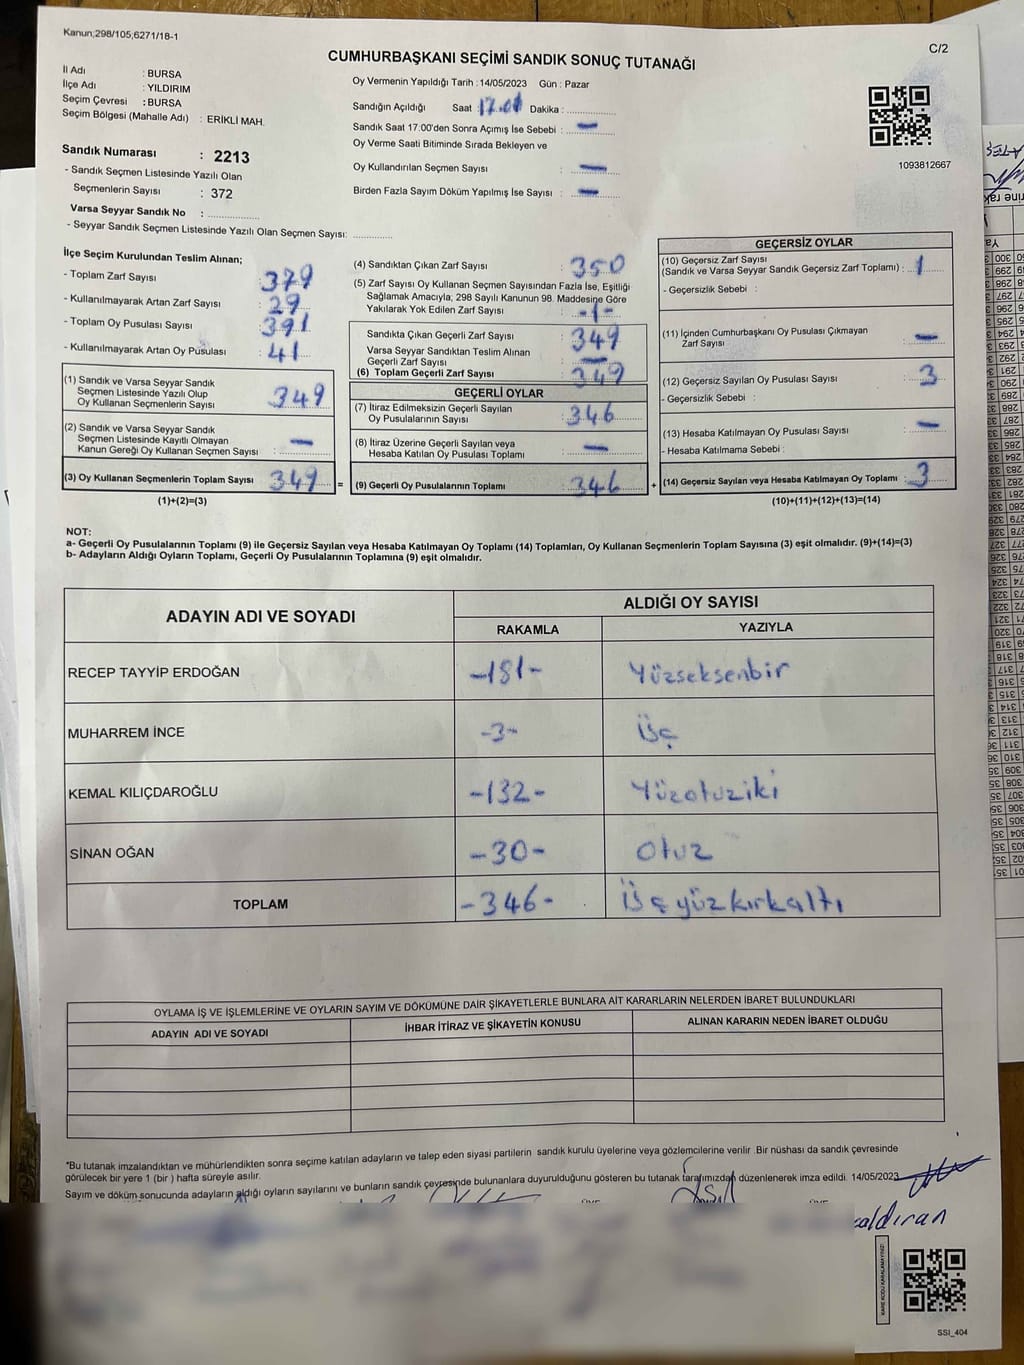 Kanun;298/105,6271/18-1
C/2
CUMHURBAŞKANI SEÇİMİ SANDIK SONUÇ TUTANAĞI
İl Adı : BURSA
İlçe Adı : YILDIRIM
Seçim Çevresi : BURSA
Seçim Bölgesi (Mahalle Adı) : ERİKLİ MAH.
Sandık Numarası : 2213
- Sandık Seçmen Listesinde Yazılı Olan
Seçmenlerin Sayısı : 372
Varsa Seyyar Sandık No : ..............
- Seyyar Sandık Seçmen Listesinde Yazılı Olan Seçmen Sayısı: ............
Oy Vermenin Yapıldığı Tarih : 14/05/2023 Gün : Pazar
Sandığın Açıldığı Saat 17.01 Dakika : ............
Sandık Saat 17:00'den Sonra Açımış İse Sebebi : —
Oy Verme Saati Bitiminde Sırada Bekleyen ve
Oy Kullandırılan Seçmen Sayısı : —
Birden Fazla Sayım Döküm Yapılmış İse Sayısı : —
1093812667
İlçe Seçim Kurulundan Teslim Alınan;
- Toplam Zarf Sayısı : 379
- Kullanılmayarak Artan Zarf Sayısı : 29
- Toplam Oy Pusulası Sayısı : 391
- Kullanılmayarak Artan Oy Pusulası : 41
(1) Sandık ve Varsa Seyyar Sandık
Seçmen Listesinde Yazılı Olup
Oy Kullanan Seçmenlerin Sayısı : 349
(2) Sandık ve Varsa Seyyar Sandık
Seçmen Listesinde Kayıtlı Olmayan
Kanun Gereği Oy Kullanan Seçmen Sayısı : —
(3) Oy Kullanan Seçmenlerin Toplam Sayısı : 349 =
(1)+(2)=(3)
(4) Sandıktan Çıkan Zarf Sayısı : 350
(5) Zarf Sayısı Oy Kullanan Seçmen Sayısından Fazla İse, Eşitliği
Sağlamak Amacıyla, 298 Sayılı Kanunun 98. Maddesine Göre
Yakılarak Yok Edilen Zarf Sayısı : -1-
Sandıkta Çıkan Geçerli Zarf Sayısı : 349
Varsa Seyyar Sandıktan Teslim Alınan
Geçerli Zarf Sayısı : —
(6) Toplam Geçerli Zarf Sayısı : 349
GEÇERLİ OYLAR
(7) İtiraz Edilmeksizin Geçerli Sayılan
Oy Pusulalarının Sayısı : 346
(8) İtiraz Üzerine Geçerli Sayılan veya
Hesaba Katılan Oy Pusulası Toplamı : —
(9) Geçerli Oy Pusulalarının Toplamı : 346 +
GEÇERSİZ OYLAR
(10) Geçersiz Zarf Sayısı
(Sandık ve Varsa Seyyar Sandık Geçersiz Zarf Toplamı) : 1
- Geçersizlik Sebebi :
(11) İçinden Cumhurbaşkanı Oy Pusulası Çıkmayan
Zarf Sayısı : —
(12) Geçersiz Sayılan Oy Pusulası Sayısı : 3
- Geçersizlik Sebebi :
(13) Hesaba Katılmayan Oy Pusulası Sayısı : —
- Hesaba Katılmama Sebebi :
(14) Geçersiz Sayılan veya Hesaba Katılmayan Oy Toplamı : 3
(10)+(11)+(12)+(13)=(14)
NOT:
a- Geçerli Oy Pusulalarının Toplamı (9) ile Geçersiz Sayılan veya Hesaba Katılmayan Oy Toplamı (14) Toplamları, Oy Kullanan Seçmenlerin Toplam Sayısına (3) eşit olmalıdır. (9)+(14)=(3)
b- Adayların Aldığı Oyların Toplamı, Geçerli Oy Pusulalarının Toplamına (9) eşit olmalıdır.
ADAYIN ADI VE SOYADI
ALDIĞI OY SAYISI
RAKAMLA YAZIYLA
RECEP TAYYİP ERDOĞAN -181- Yüzseksenbir
MUHARREM İNCE -3- Üç
KEMAL KILIÇDAROĞLU -132- Yüzotuziki
SİNAN OĞAN -30- Otuz
TOPLAM -346- Üçyüzkırkaltı
OYLAMA İŞ VE İŞLEMLERİNE VE OYLARIN SAYIM VE DÖKÜMÜNE DAİR ŞİKAYETLERLE BUNLARA AİT KARARLARIN NELERDEN İBARET BULUNDUKLARI
ADAYIN ADI VE SOYADI İHBAR İTİRAZ VE ŞİKAYETİN KONUSU ALINAN KARARIN NEDEN İBARET OLDUĞU
*Bu tutanak imzalandıktan ve mühürlendikten sonra seçime katılan adayların ve talep eden siyasi partilerin sandık kurulu üyelerine veya gözlemcilerine verilir .Bir nüshası da sandık çevresinde
görülecek bir yere 1 (bir ) hafta süreyle asılır.
Sayım ve döküm sonucunda adayların aldığı oyların sayılarını ve bunların sandık çevresinde bulunanlara duyurulduğunu gösteren bu tutanak tarafımızdan düzenlenerek imza edildi. 14/05/2023
KARE KODU KARALAMAYINIZ!
SSİ_404